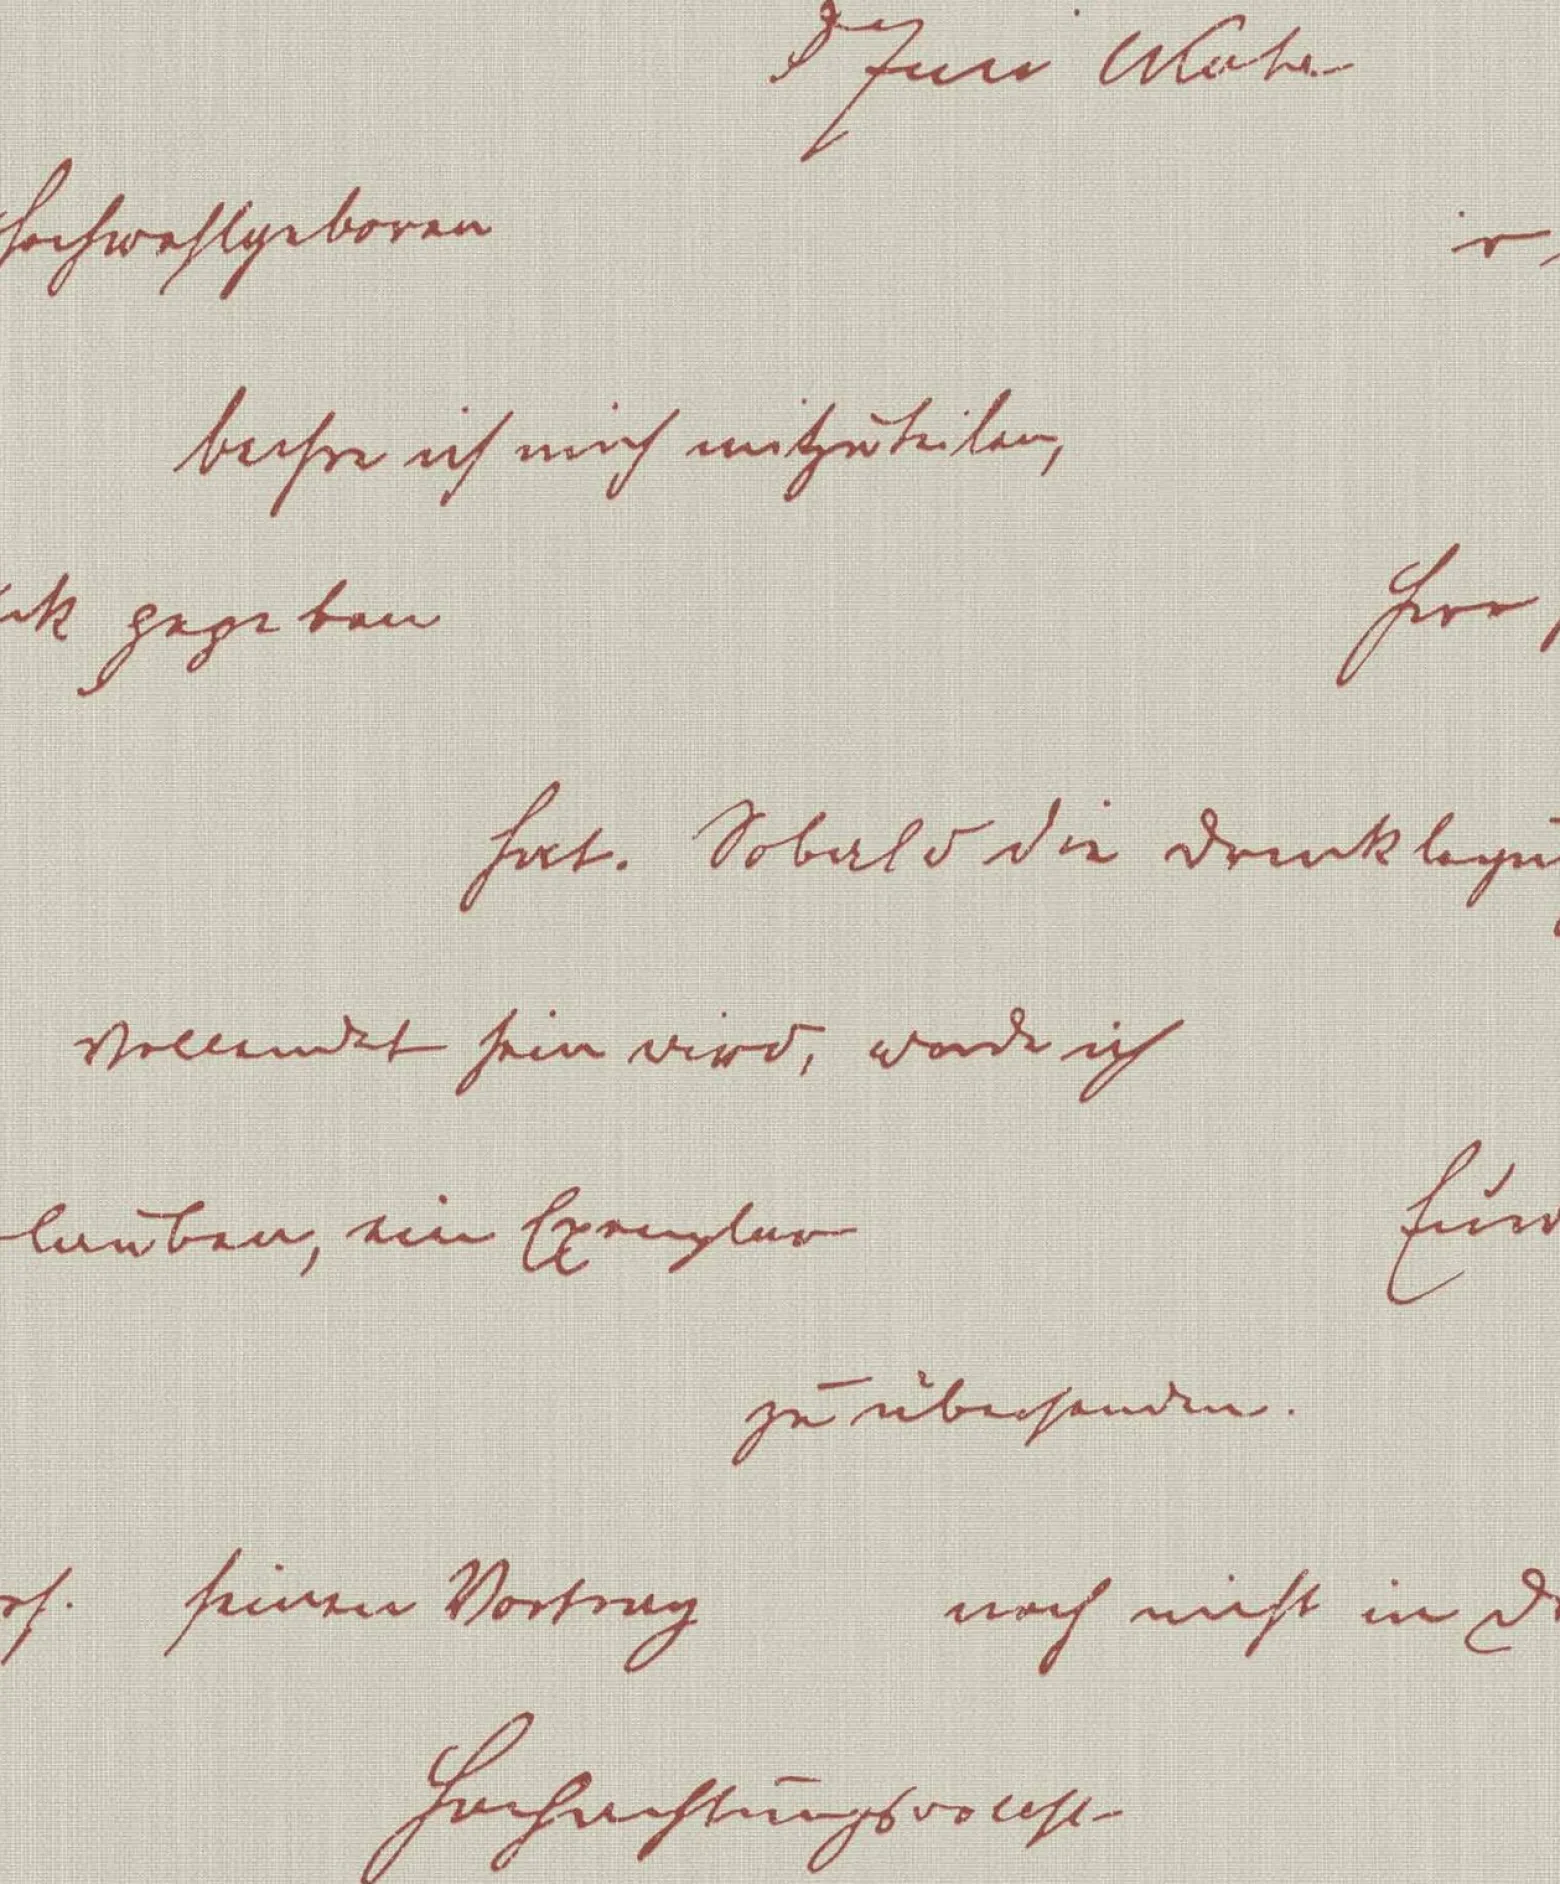 Hochwohlgeboren
beehre ich mich mitzuteilen,
gegeben Herr
hat. Sobald die Drucklegung
vollendet sein wird, werde ich
lauben, ein Exemplar Euer
zu übersenden.
seinen Vortrag noch nicht in Dr
Hochachtungsvollst